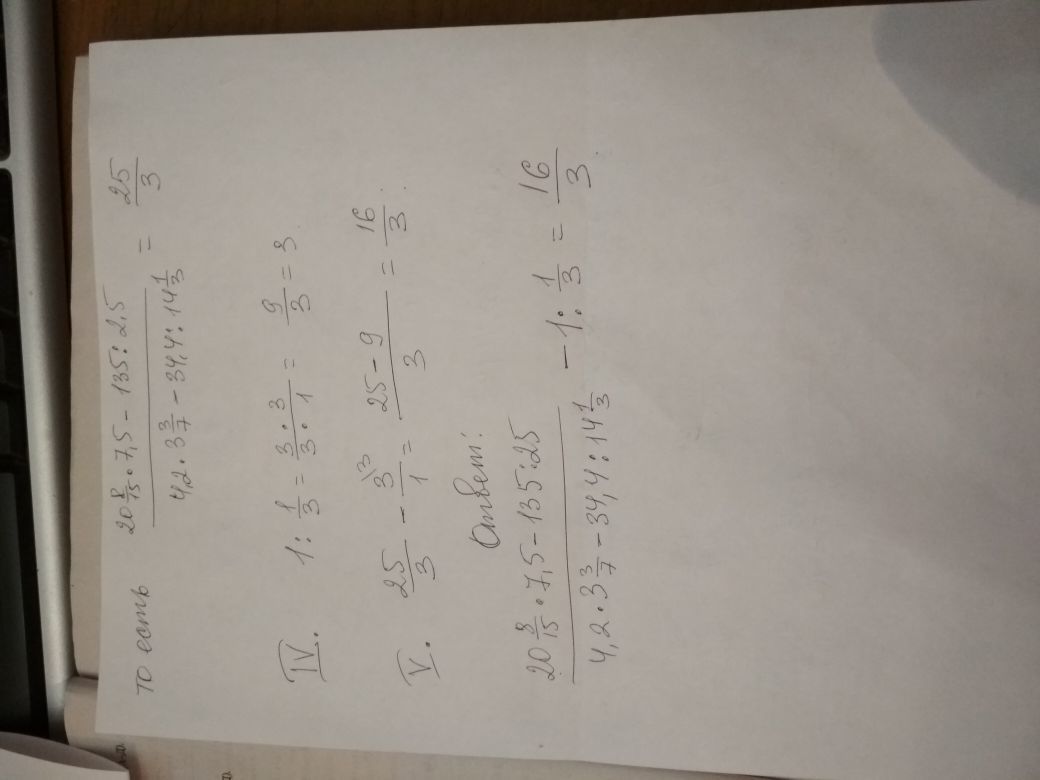 то есть (20 8/15 · 7,5 − 135 : 2,5) / (4,2 · 3 3/7 − 34,4 : 14 1/3) = 25/3
IV. 1 : 1/3 = (3 · 3)/(3 · 1) = 9/3 = 3.
V. 25/3 − 3\3/1 = (25 − 9)/3 = 16/3.
Ответ:
(20 8/15 · 7,5 − 135 : 25) / (4,2 · 3 3/7 − 34,4 : 14 1/3) − 1 : 1/3 = 16/3.